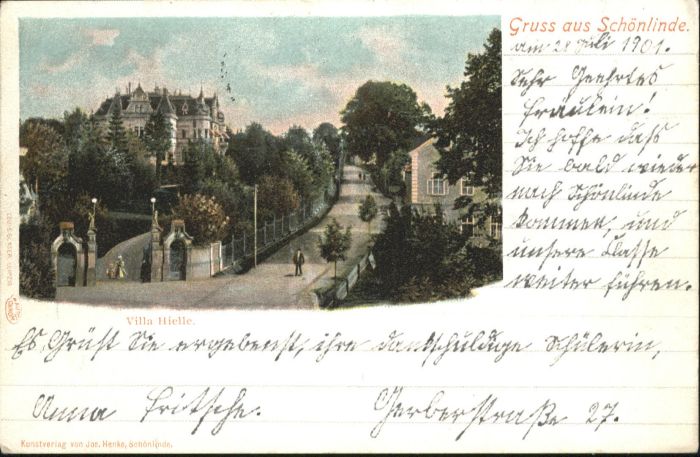 Gruss aus Schönlinde.
am 28 Juli 1901.
Sehr Geehrtes
Fräulein!
Ich hoffe daß
Sie bald wieder
nach Schönlinde
kommen, und
unsere Classe
weiter führen.
Villa Hielle.
Es Grüßt Sie ergebenst, ihre dankschuldige Schülerin,
Anna Fritsche. Gerberstraße 27.
Kunstverlag von Jos. Henke, Schönlinde.